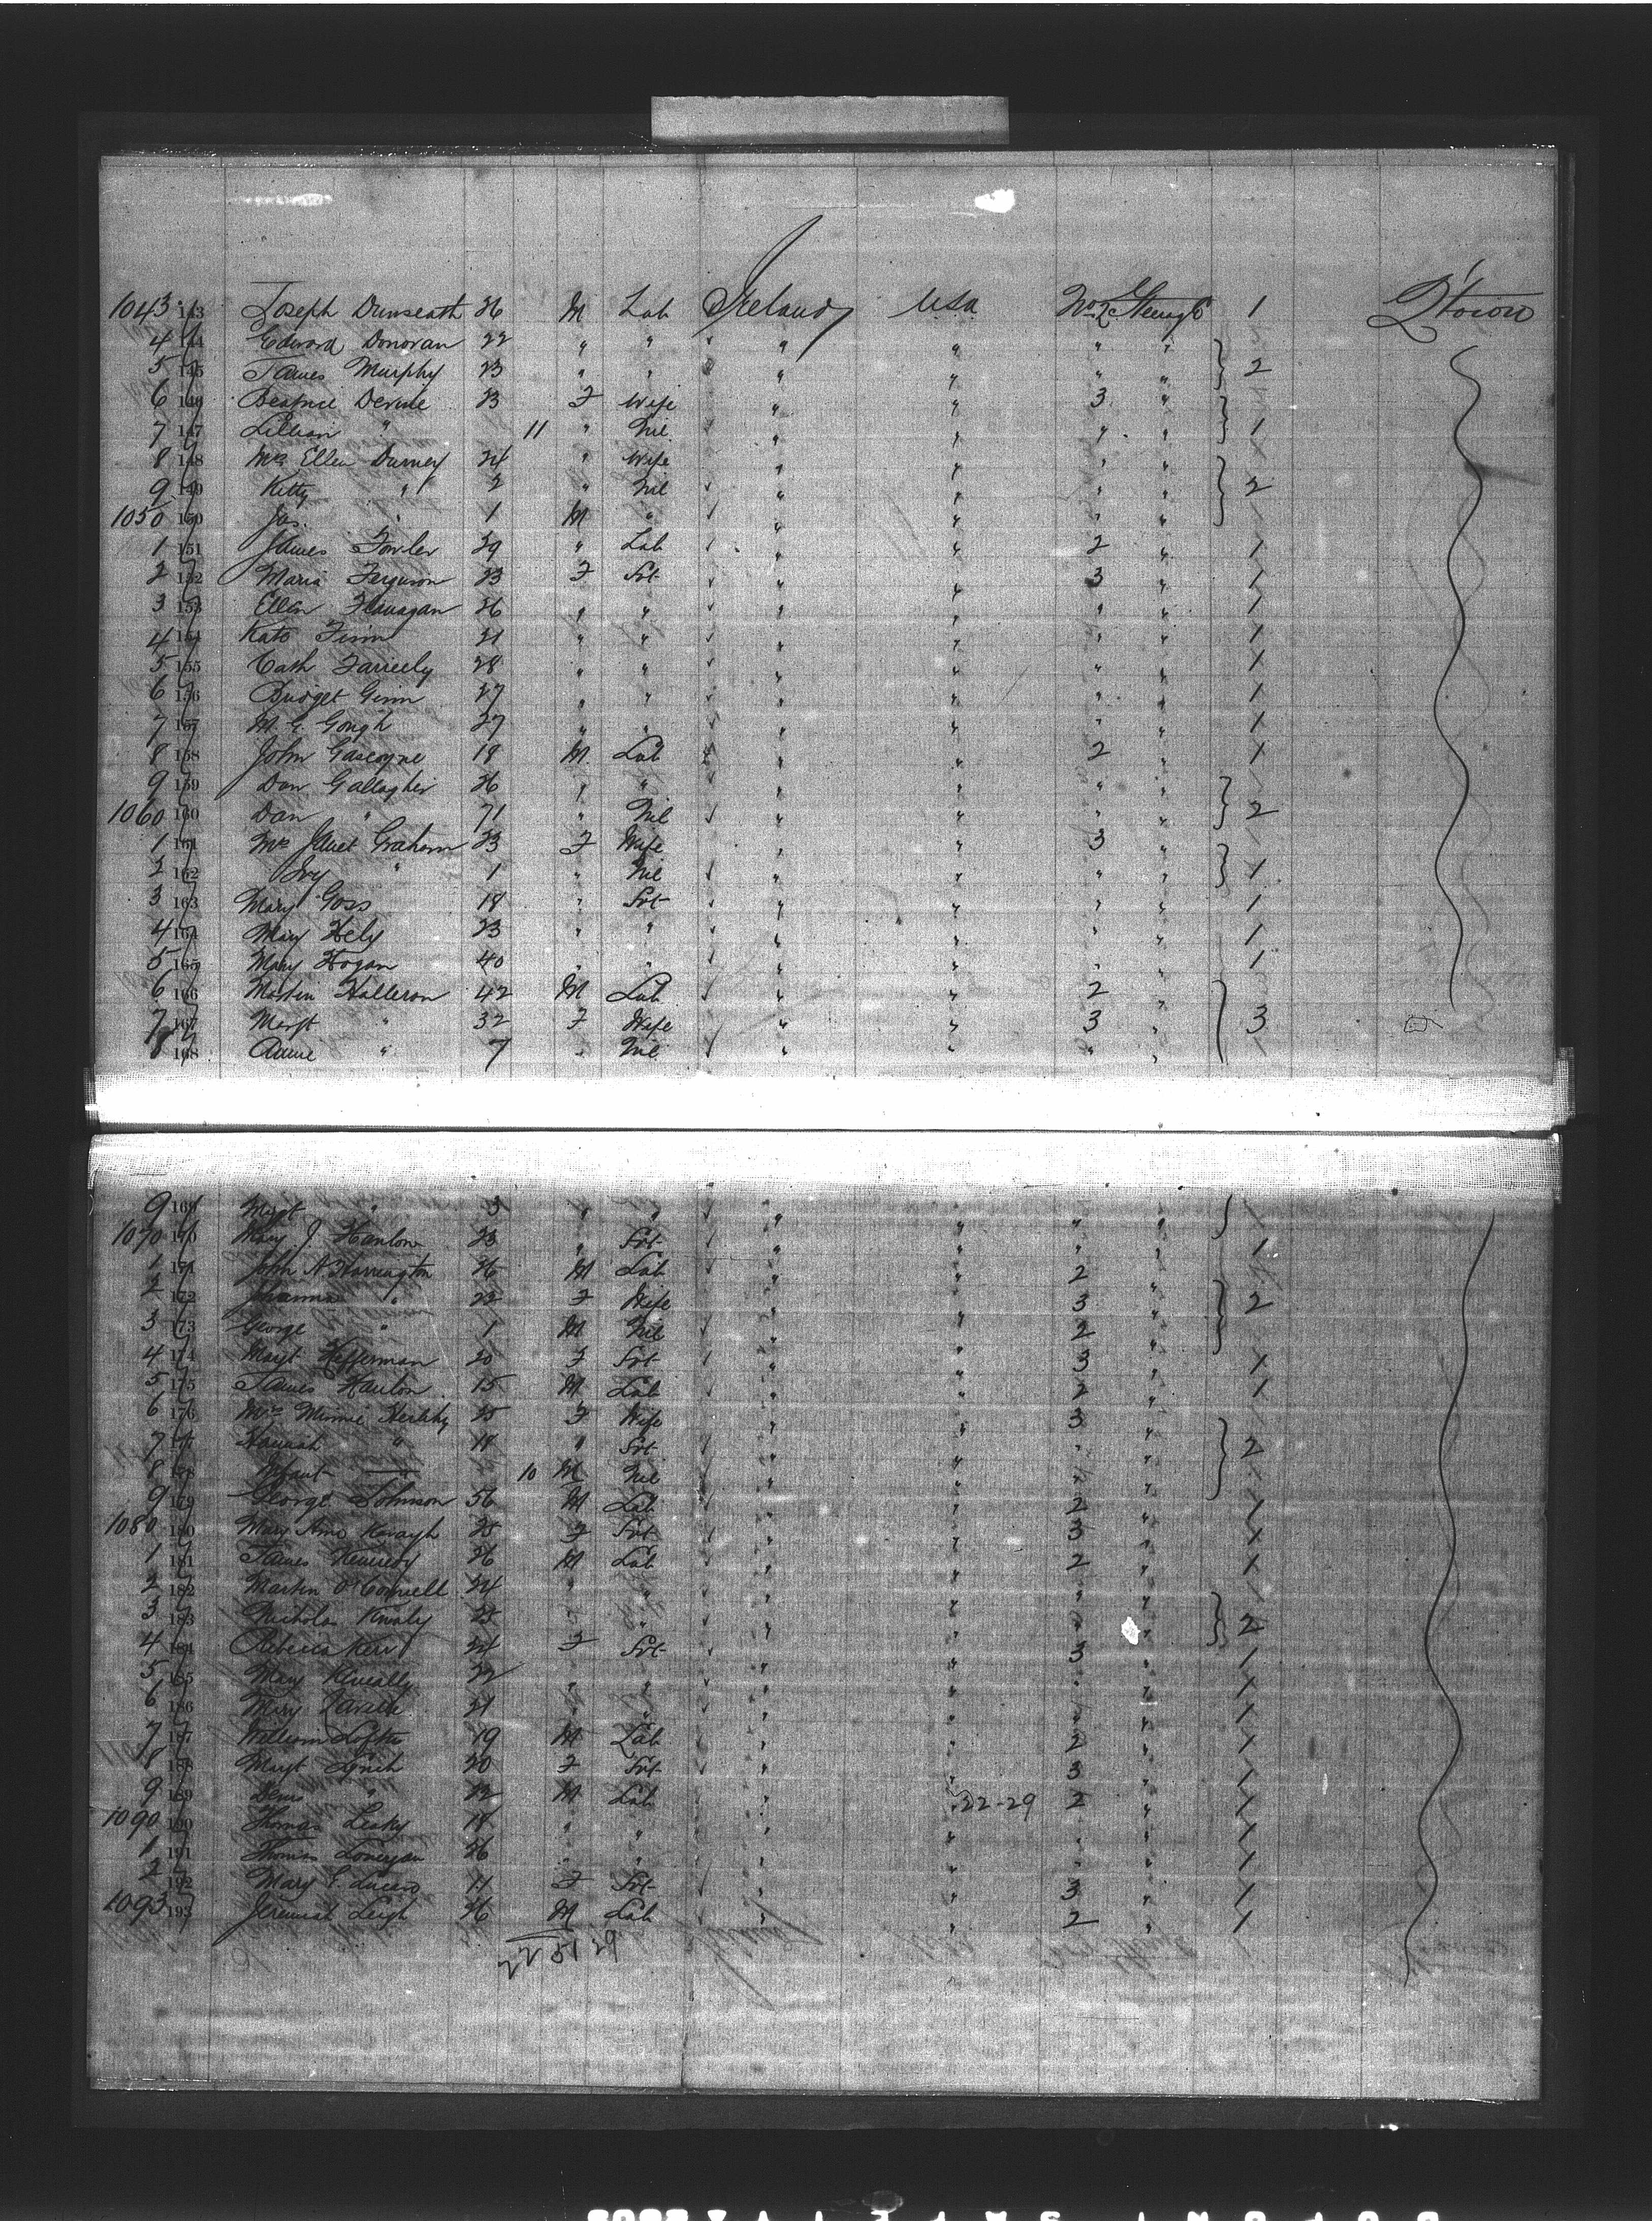 1043 143 Joseph Dunseath 26 M Lab Ireland USA No 2 Steerage 1 Q'town
4 144 Edward Donovan 22 " " " " " "
5 145 James Murphy 23 " " " " " " 2
6 146 Beatrice Devine 23 F Wife " " 3 "
7 147 Lillian " 11 " Nil " " " " 1
8 148 Mrs Ellen Durney 24 " Wife " " " "
9 149 Kitty " 2 " Nil " " " " 2
1050 150 Jas. " 1 M " " " " "
1 151 James Fowler 29 " Lab " " 2 " 1
2 152 Maria Ferguson 23 F Svt " " 3 " 1
3 153 Ellen Flanagan 26 " " " " " " 1
4 154 Kate Finn 21 " " " " " " 1
5 155 Cath Farrelly 28 " " " " " " 1
6 156 Bridget Ginn 27 " " " " " " 1
7 157 M. G. Gough 27 " " " " " " 1
8 158 John Gascoyne 18 M Lab " " 2 " 1
9 159 Dan Gallagher 26 " " " " " "
1060 160 Dan " 71 " Nil " " " " 2
1 161 Mrs Janet Graham 23 F Wife " " 3 "
2 162 Ivy " 1 " Nil " " " " 1
3 163 Mary Goss 18 " Svt " " " " 1
4 164 Mary Hely 23 " " " " " " 1
5 165 Mary Hogan 40 " " " " " " 1
6 166 Martin Halleron 42 M Lab " " 2 "
7 167 Margt " 32 F Wife " " 3 " 3
8 168 Annie " 7 " Nil " " " "
9 169 Margt " 3 " " " " " "
1070 170 Mary J. Hanlon 23 " Svt " " " " 1
1 171 John A. Harrington 26 M Lab " " 2 "
2 172 Johanna " 22 F Wife " " 3 " 2
3 173 George " 1 M Nil " " 2 "
4 174 Margt Hefferman 20 F Svt " " 3 " 1
5 175 James Hanlon 15 M Lab " " 2 " 1
6 176 Mrs Minnie Herlihy 25 F Wife " " 3 "
7 177 Hannah " 18 " Svt " " " " 2
8 178 Infant " 10 M Nil " " " "
9 179 George Johnson 56 M Lab " " 2 " 1
1080 180 Mary Anne Kavagh 25 F Svt " " 3 " 1
1 181 James Kennedy 26 M Lab " " 2 " 1
2 182 Martin O'Connell 24 " " " " " "
3 183 Nicholas 25 " " " " " " 2
4 184 Rebecca Kerr 24 F Svt " " 3 " 1
5 185 Mary Kineally 22 " " " " " " 1
6 186 Mary 21 " " " " " " 1
7 187 William Loftus 19 M Lab " " 2 " 1
8 188 Margt Lynch 20 F Svt " " 3 " 1
9 189 Denis " 22 M Lab " " 22-29 2 " 1
1090 190 Thomas Leahy 18 " " " " " " 1
1 191 Thomas Lonergan 26 " " " " " " 1
2 192 Mary E. 11 F Svt " " 3 " 1
1093 193 Jeremiah Leigh 26 M Lab " " 2 " 1
22 51 29